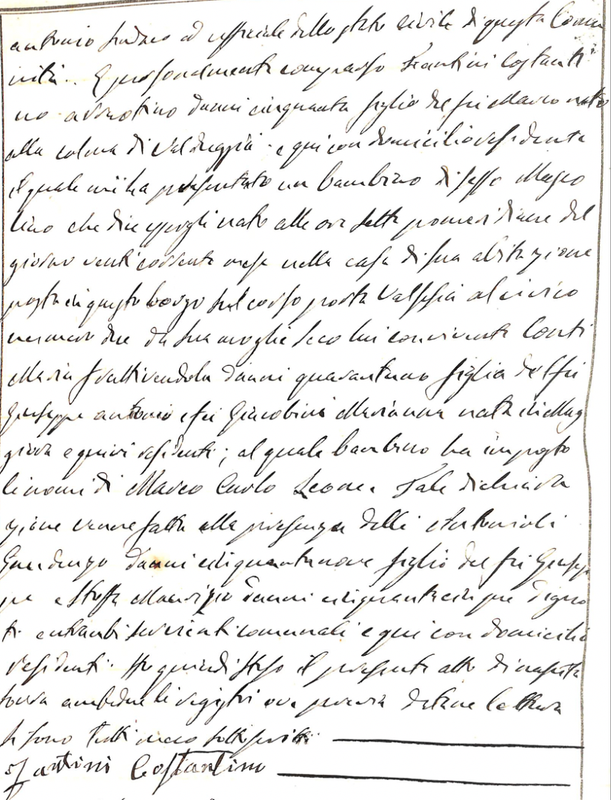 antonio Sindaco ed ufficiale dello stato civile di questa Comu
nità.. È personalmente comparso Fantini Costanti
no d'anni cinquanta figlio del fu Marco nato
alla colma di Valduggia e qui con domicilio residente
il quale mi ha presentato un bambino di sesso Masco
lino che dice essergli nato alle ore sette pomeridiane del
giorno venti corrente mese nella casa di sua abitazione
posta in questo borgo sul corso porta Valsesia al civico
numero due da sua moglie seco lui convivente Conti
Maria fruttivendola d'anni quarantuno figlia del fu
Giuseppe antonio e fu Giacobini Marianna nata in Mag
giora e quivi residenti; al quale bambino ha imposto
li nomi di Marco Carlo Leone. Tale dichiara
zione venne fatta alla presenza delli Antonioli
Gaudenzo d'anni cinquantanove figlio del fu Giusep
pe e Maurizio d'anni cinquantacinque
ti entrambi serventi comunali e qui con domicilio
residenti. Ho quindi steso il presente atto di nascita
sovra ambedue li registri ove previa dettane lettura
si sono tutti meco sottoscritti
Fantini Costantino